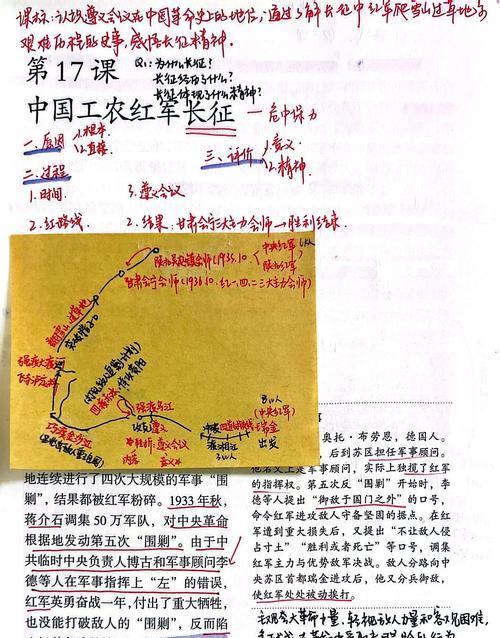 课标:认识遵义会议在中国革命史上的地位,通过了解长征中红军爬雪山过草地等
艰难历程的故事,感悟长征精神.
第17课
Q1:为什么长征?
长征经历了什么?
长征体现了什么精神?
中国工农红军长征 — 危中保力
一、原因 1.根本
2.直接
三、评价 1.意义
2.精神
二、过程
1.时间
3.遵义会议
2.红路线
2.结果:甘肃会宁三大主力会师→胜利结束
陕北吴起镇会师(1935.10.
中央红军
陕北红军
甘肃会宁会师(1936.10.红一.四.二三大主力会师)
翻雪山过草地
强渡大渡河
飞夺泸定桥
四渡赤水
强渡乌江
巧渡金沙江
攻占遵义
转折:遵义会议
内容 意义
突破四道封锁线
湘江
8w人
(中央红军)
瑞金
出发
奥托·布劳恩,德国人。
后到苏区担任军事顾问。
他名义上是军事顾问,实际上独揽了红军
的指挥权。第五次反“围剿”开始时,李
德等人提出“御敌于国门之外”的口号,
命令红军进攻敌人守备坚固的据点。在红
军遭到重大损失后,又提出“不让敌人侵
占寸土”“胜利或者死亡”等口号,调集
红军主力与优势敌军决战。敌人分路向中
央苏区首都瑞金进攻后,他又分兵御敌,
使红军处处被动挨打。
地连续进行了四次大规模的军事“围
剿”,结果都被红军粉碎。1933年秋,
蒋介石调集50万军队,对中央革命
根据地发动第五次“围剿”。由于中
共临时中央负责人博古和军事顾问李
德等人在军事指挥上“左”的错误,
红军英勇奋战一年,付出了重大牺牲,
也没能打破敌人的“围剿”,反而陷